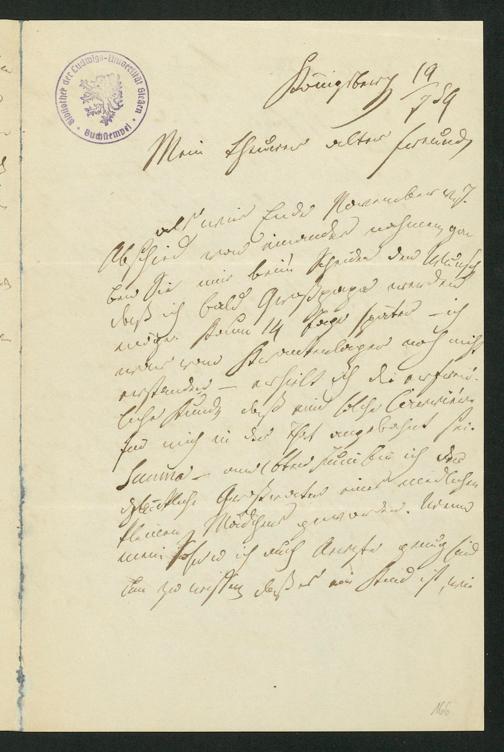 Bibliothek der Ludwigs-Universität Giessen
Buchstempel
Königsberg 19/7 59
Mein theurer alter Freund,
als wir Ende November v. J.
Abschied von einander nahmen, ga-
ben Sie mir beim Scheiden den Wunsch
daß ich bald Großpapa werden
möge. Kaum 14 Tage später – ich
war vom Krankenlager noch nicht
erstanden – erhielt ich die erfreu-
liche Kunde, daß eine solche Carrière
für mich in der That angebahnt sei.
Summa – am 6ten Juni bin ich der
glückliche Großvater eines niedlichen
kleinen Mädchens geworden. Wenn
mein Sohn u ich auch Aerzte genug sind
um zu wissen, daß es ein Kind ist, wie
166